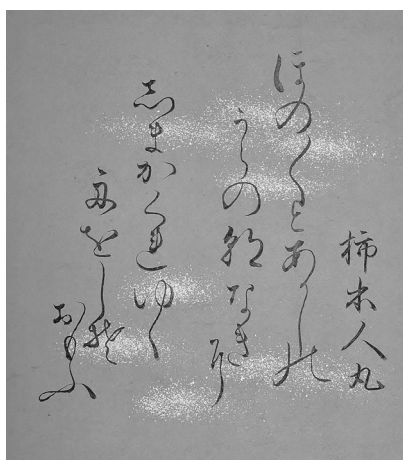 柿本人丸
ほの〱とあかしの
うらの朝なきに
しまかくれゆく
舟をしそ
おもふ